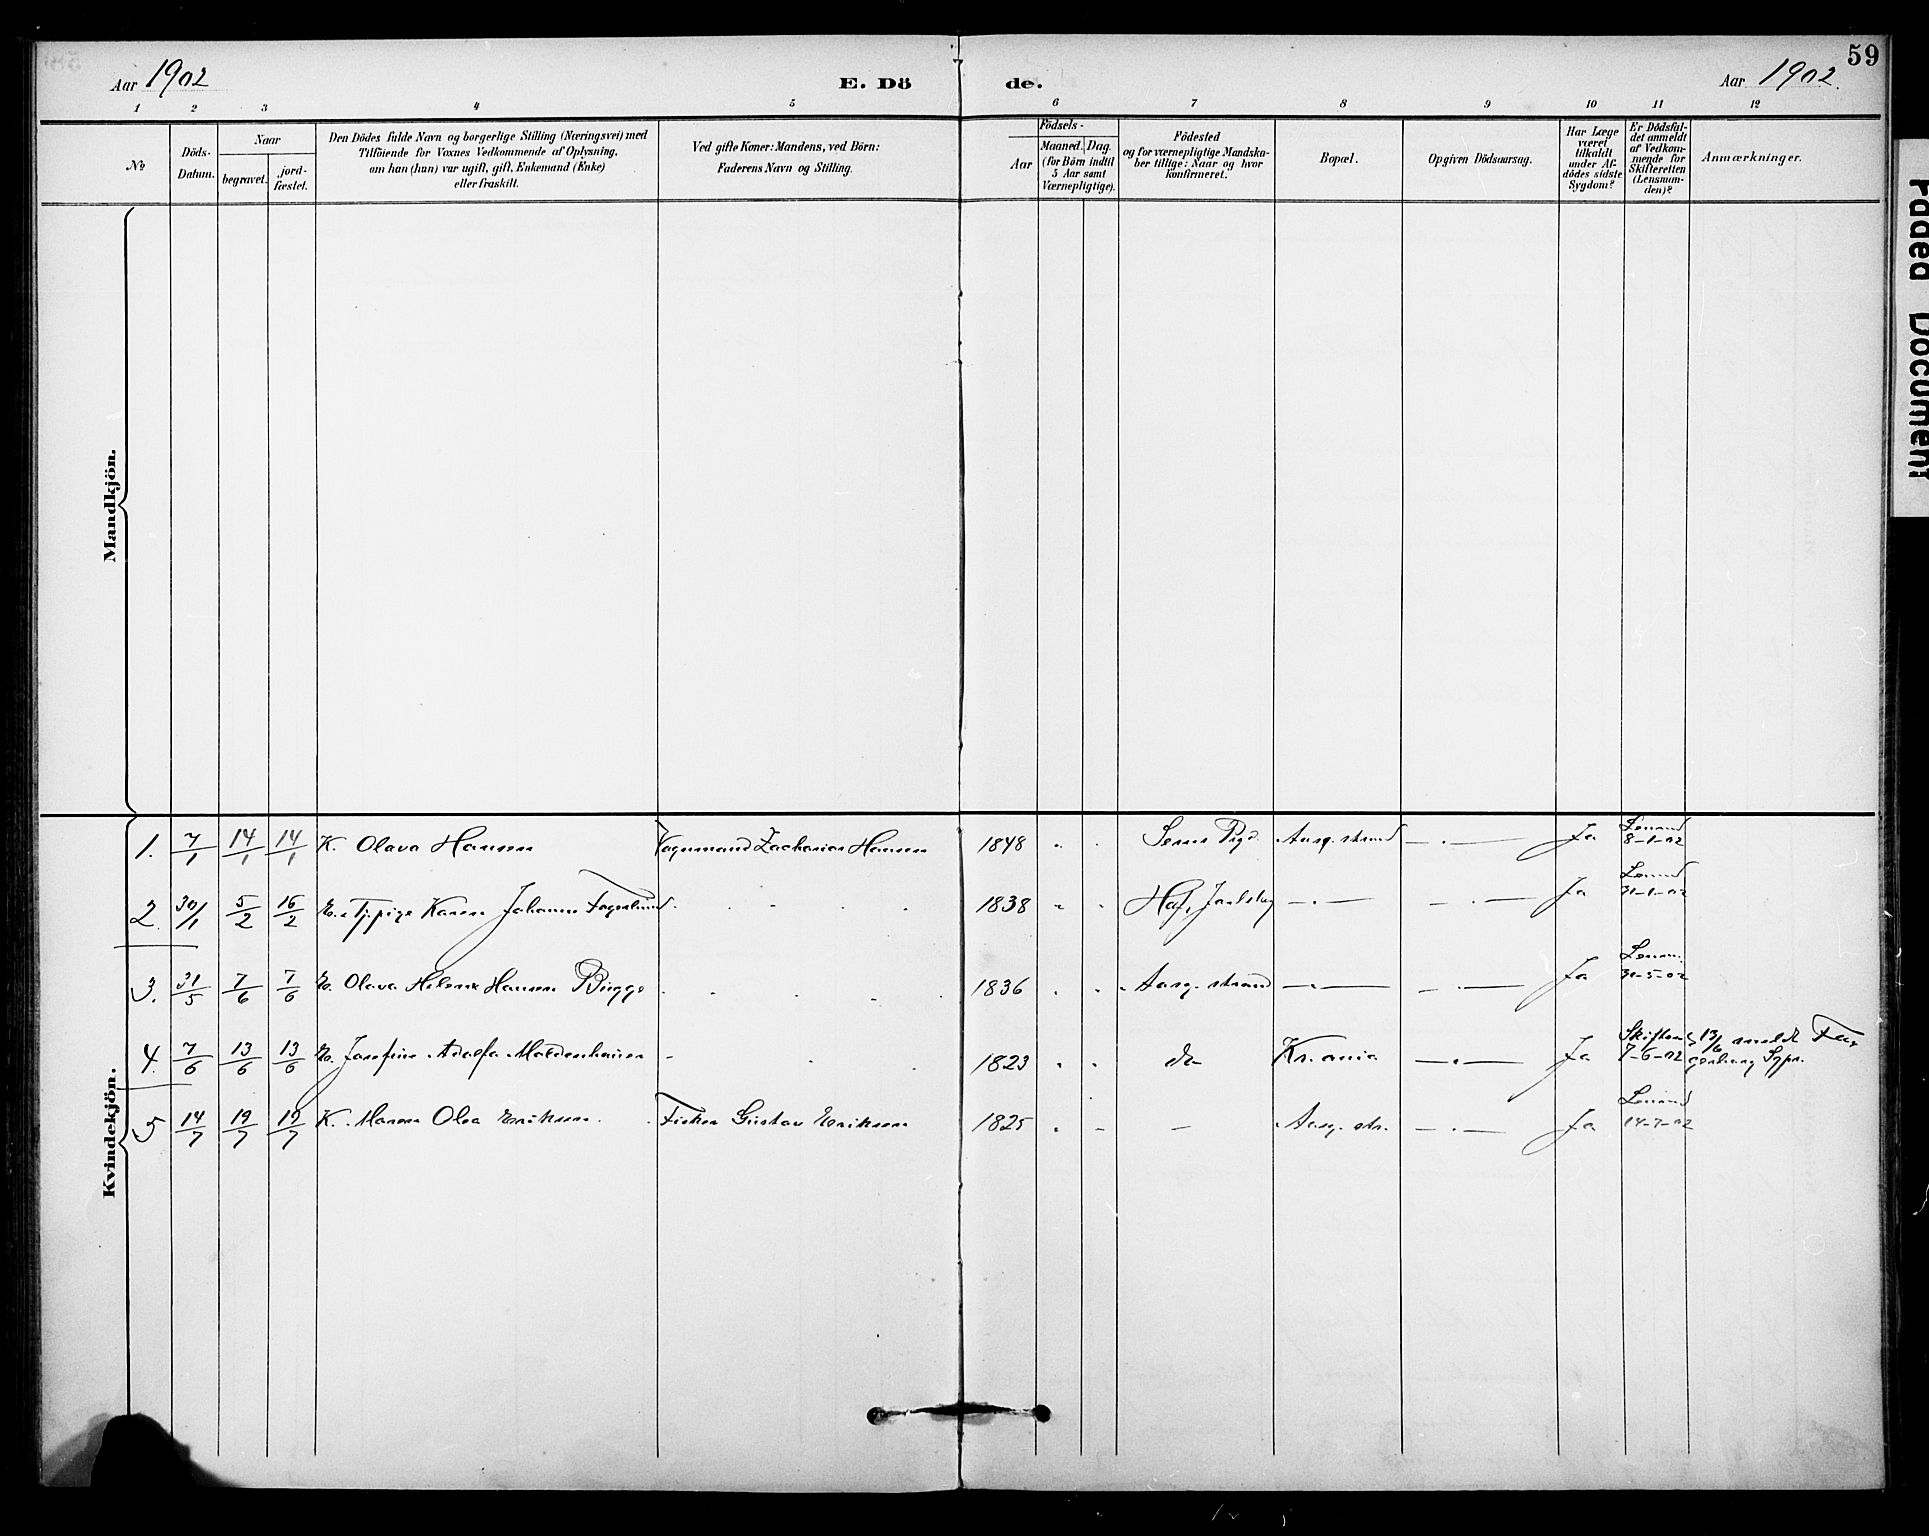 59
Aar 1902 E. Dö de. Aar 1902.
1 2 3 4 5 6 7 8 9 10 11 12
No
Döds-Datum.
Naar
begravet.
jord-fæstet.
Den Dödes fulde Navn og borgerlige Stilling (Næringsvei) med
Tilföiende for Voxnes Vedkommende af Oplysning,
om han (hun) var ugift, gift, Enkemand (Enke)
eller fraskilt.
Ved gifte Koner: Mandens, ved Börn:
Faderens Navn og Stilling.
Födsels-
Aar
Maaned. Dag.
(for Börn indtil
5 Aar samt
Værnepligtige).
Födested
og for værnepligtige Mandska-
ber tillige: Naar og hvor
konfirmeret.
Bopæl.
Opgiven Dödsaarsag.
Har Læge
været
tilkaldt
under Af-
dödes sidste
Sygdom?
Er Dödsfal-
det anmeldt
af Vedkom-
mende for
Skifteretten
(Lensman-
den)?
Anmærkninger.
Mandkjön.
Kvindekjön.
1. 7/1 14/1 14/1 K. Olava Hansen Vognmand Zacharias Hansen 1848 Aasg. strand Ja Lensmd 8-1-02
2. 30/1 5/2 16/2 E. Tj.pige Karen Johanne Fagerlund 1838 Jarlsbg Ja Lensmd 31-1-02
3. 31/5 7/6 7/6 E. Olava Helene Hansen Bugge 1836 Aasg. strand Ja Lensm. 31-5-02
4. 7/6 13/6 13/6 E. Josefine Adolfa Moldenhauer 1823 do Kr.ania Ja Skifter 7-6-02 13/6 anmeldt
5 14/7 19/7 19/7 K. Maren Olea Eriksen Fisker Gustav Eriksen 1825 Aasg. str. Ja Lensmd 14-7-02
Paged Document